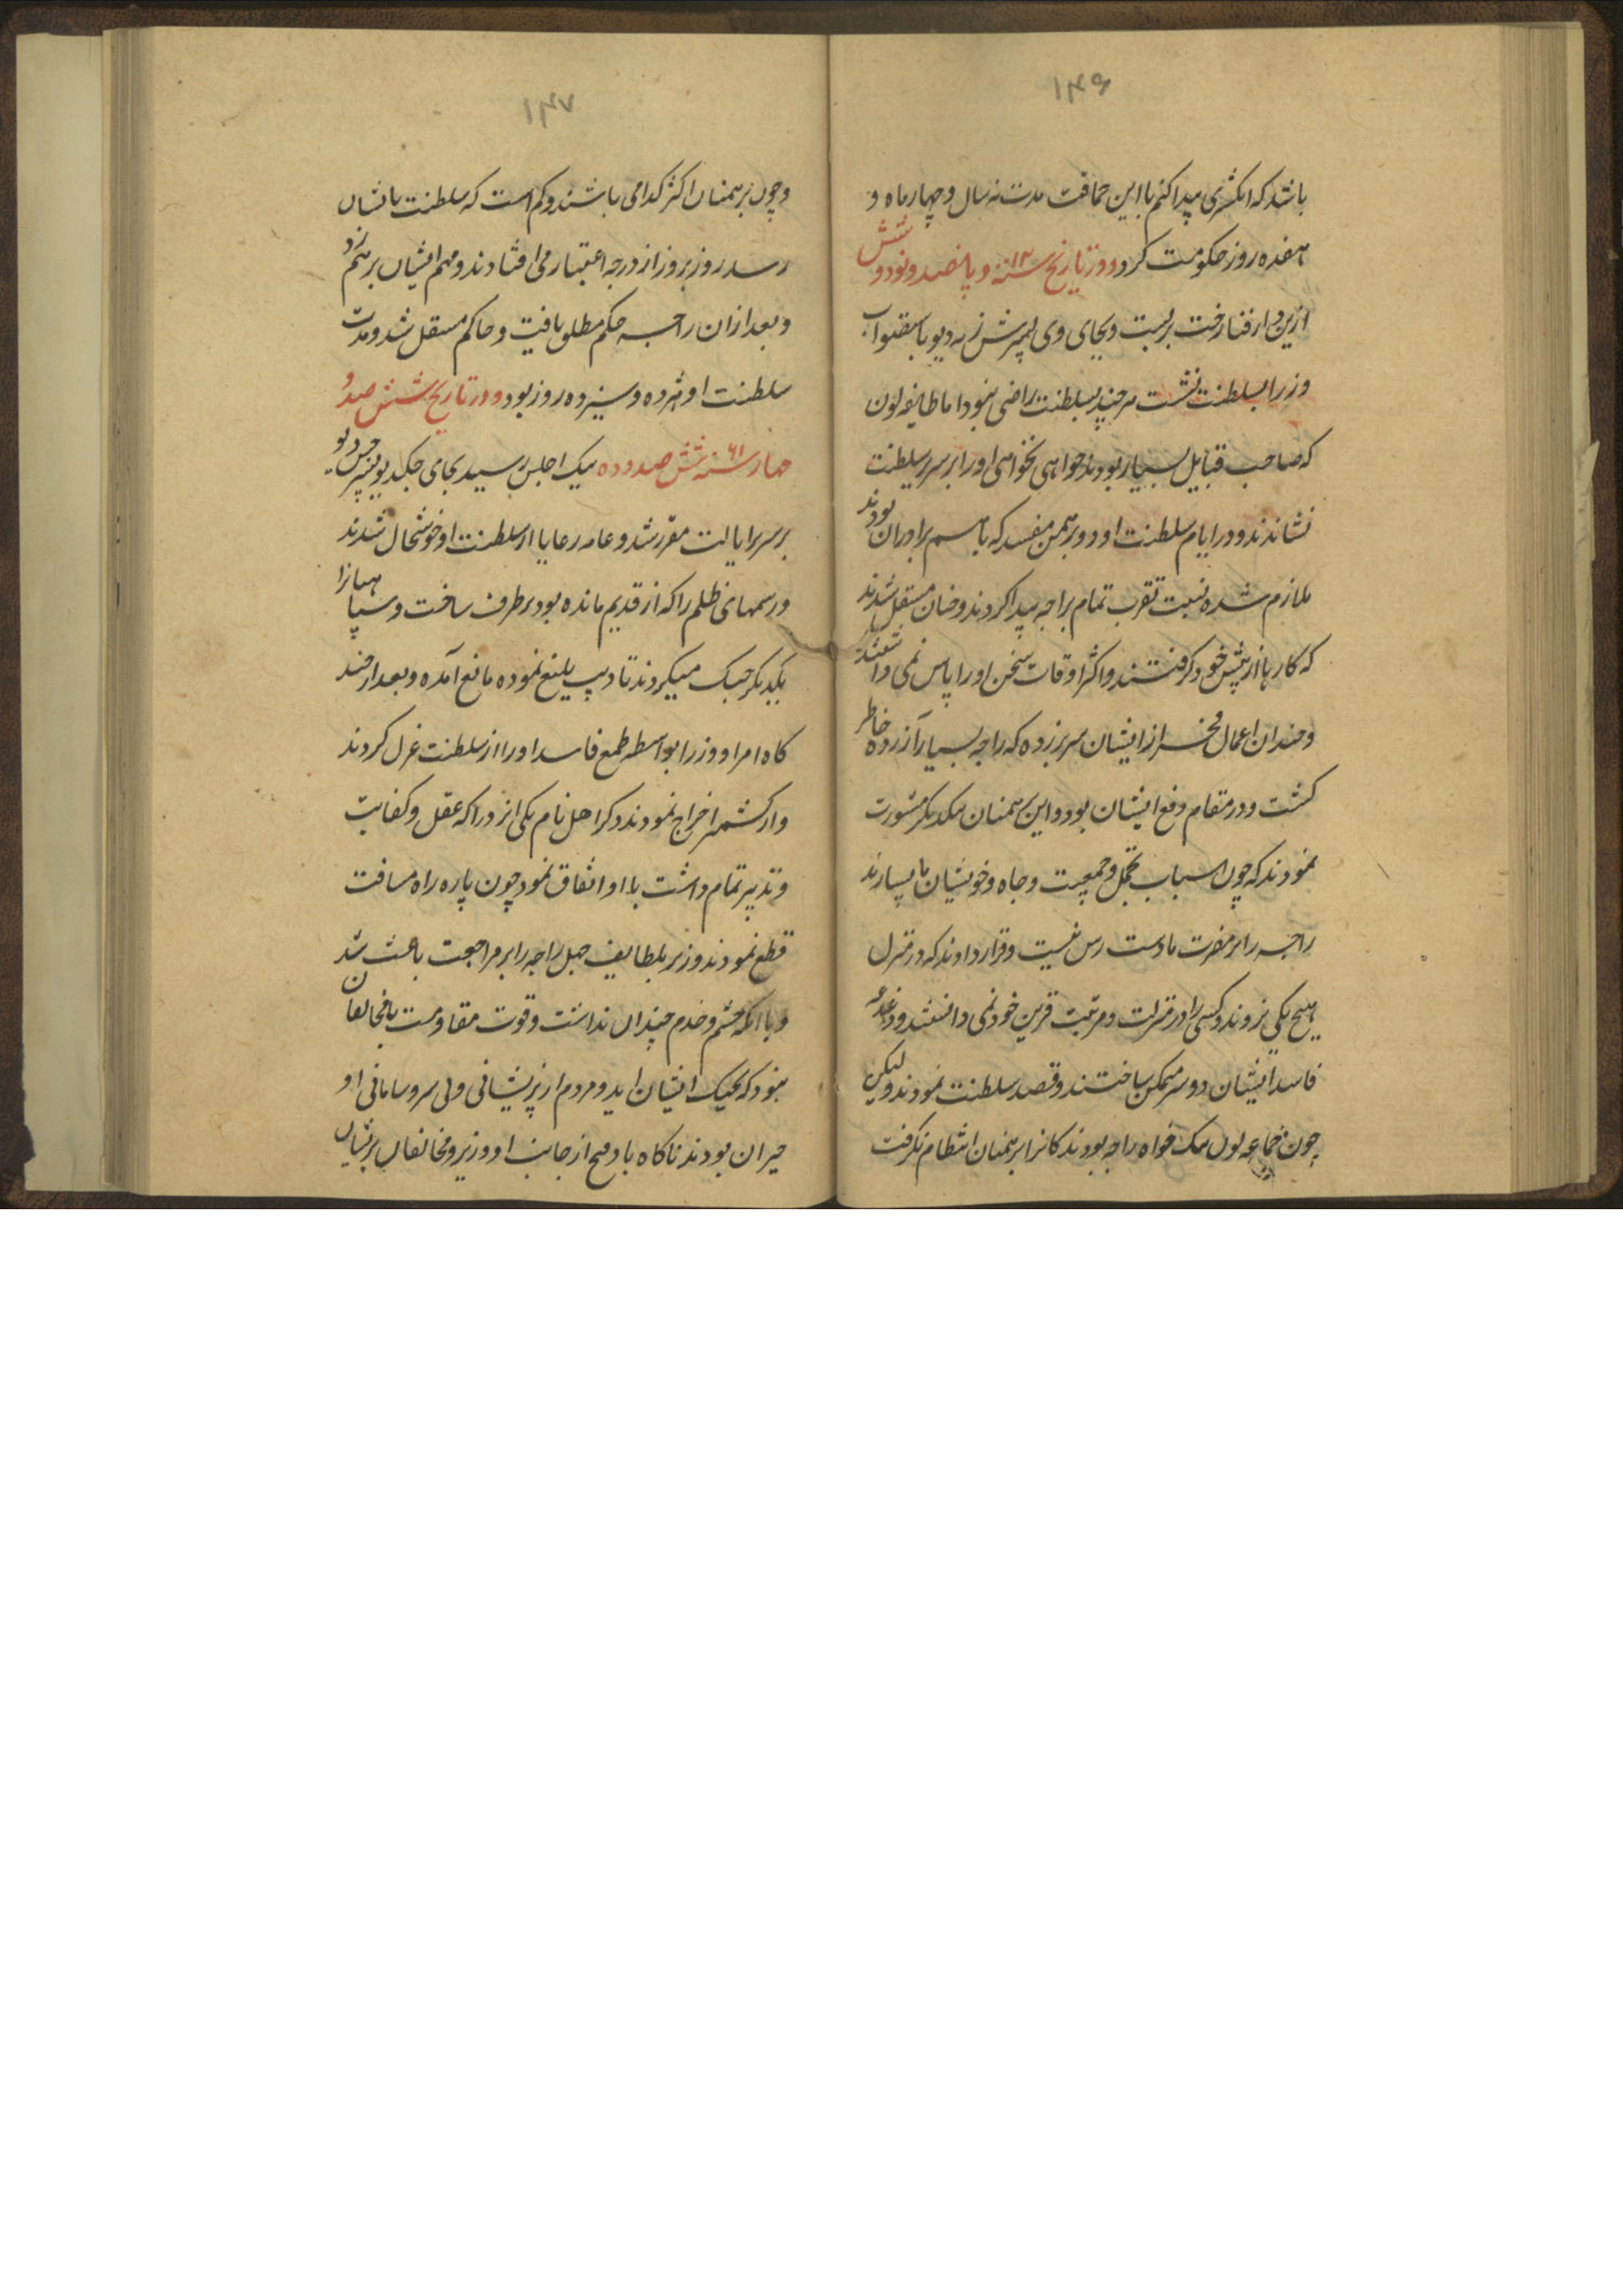 ۱۴۶
باشد که انکشتری پیدا کنم با این حماقت مدت نه سال و چهار ماه و
هفده روز حکومت کرد و در تاریخ سنه ۱۳ و پانصد و نود و شش
ازین دار فنا رخت بربست و بجای وی پسرش زسه دیو باستصواب
وزرا بسلطنت نشست هر چند بسلطنت راضی نبود اما طایفه لون
که صاحب قبایل بسیار بودند خواهی نخواهی او را بر سریر سلطنت
نشاندند و در ایام سلطنت او دو برهمن مفسد که باهم برادران بودند
ملازم شده نسبت تقرب تمام براجه پیدا کردند و چنان مستقل شدند
که کارها از پیش خود کرفتند و اکثر اوقات سخن او را پاس نمی داشتند
و چندان اعمال از ایشان سر بر زده که راجه بسیار آزرده خاطر
کشت و در مقام دفع ایشان بود و این برهمنان بیکدیکر مشورت
نمودند که چون اسباب تجمل و جمعیت و جاه و خویشان ما بسیارند
راجه را بر مضرت ما دست رس نیست و قرار دادند که در منزل
هیچ یکی نروند و کسی را در منزلت و مرتبت قرین خود نمی دانستند و داعیه
فاسد ایشان دو سر ممکن ساختند و قصد سلطنت نمودند ولیکن
چون جماعه لون نیک خواه راجه بودند کار برهمنان انتظام نکرفت
۱۴۷
و چون برهمنان اکثر کدامی باشند و کم است که سلطنت بایشان
رسد روز بروز از درجه اعتبار می افتادند و مهم ایشان برهم زد
و بعد از ان راجه حکم مطلق یافت و حاکم مستقل شد و مدت
سلطنت او هژده و سیزده روز بود و در تاریخ شش صد و
چهار سنه ۶۱ شش صد و ده بیک اجلش رسید بجای جکدیو پسر جس دیو
بر سریر ایالت مقرر شد و عامه رعایا از سلطنت او خوشحال شدند
و رسمهای ظلم را که از قدیم مانده بود بر طرف ساخت و سپاهیان را
بیکدیکر جنک میکردند تادیب بلیغ نموده مانع آمده و بعد از چند
کاه امرا و وزرا بواسطه طمع فاسد او را از سلطنت عزل کردند
و از کشمیر اخراج نمودند دکراهل نام یکی از وزرا که عقل و کفایت
و تدبیر تمام داشت با او اتفاق نمود چون پاره راه مسافت
قطع نمودند وزیر بلطایف حیل راجه را بر مراجعت باعث شد
و با آنکه حشم و خدم چندان نداشت و قوت مقاومت با مخالفان
نبود که بجنک ایشان اید و مردم از پریشانی و بی سر و سامانی او
حیران بودند ناکاه باد فتح از جانب او وزیر و مخالفان پریشان